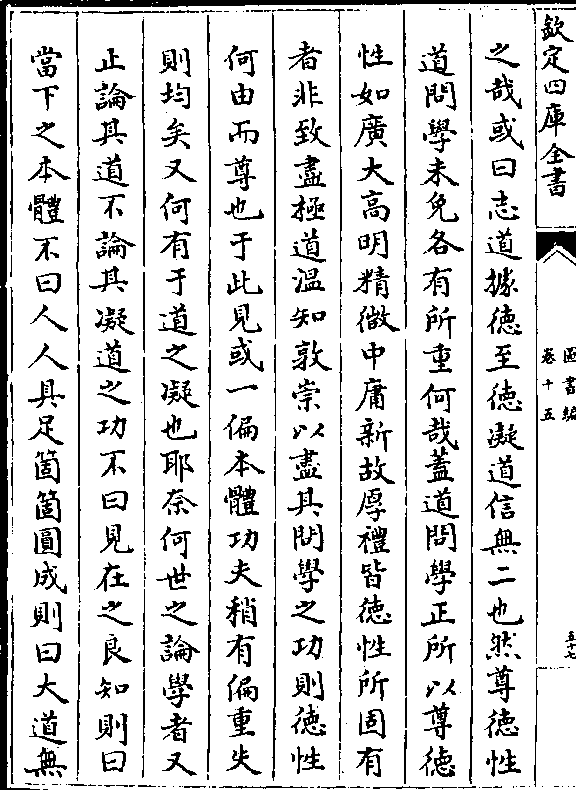 欽定四庫全書
圖書編
卷十五
五十七
之哉或曰志道據德至德凝道信無二也然尊德性
道問學未免各有所重何哉蓋道問學正所以尊德
性如廣大高明精微中庸新故厚禮皆德性所固有
者非致盡極道溫知敦崇以盡其問學之功則德性
何由而尊也于此見或一偏本體功夫稍有偏重失
則均矣又何有于道之凝也耶奈何世之論學者又
止論其道不論其凝道之功不曰見在之良知則曰
當下之本體不曰人人具足箇箇圓成則曰大道無